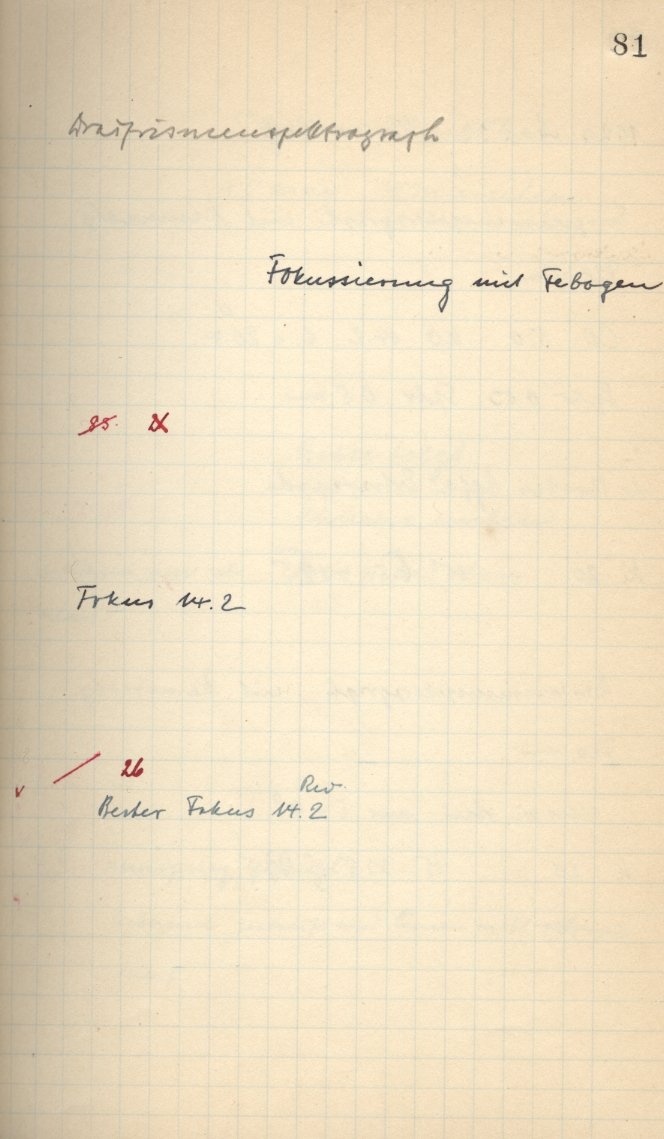 81
Dreiprismenspektrograph
Fokussierung mit Febogen
85.
Fokus 14.2
26
Rev.
Bester Fokus 14.2